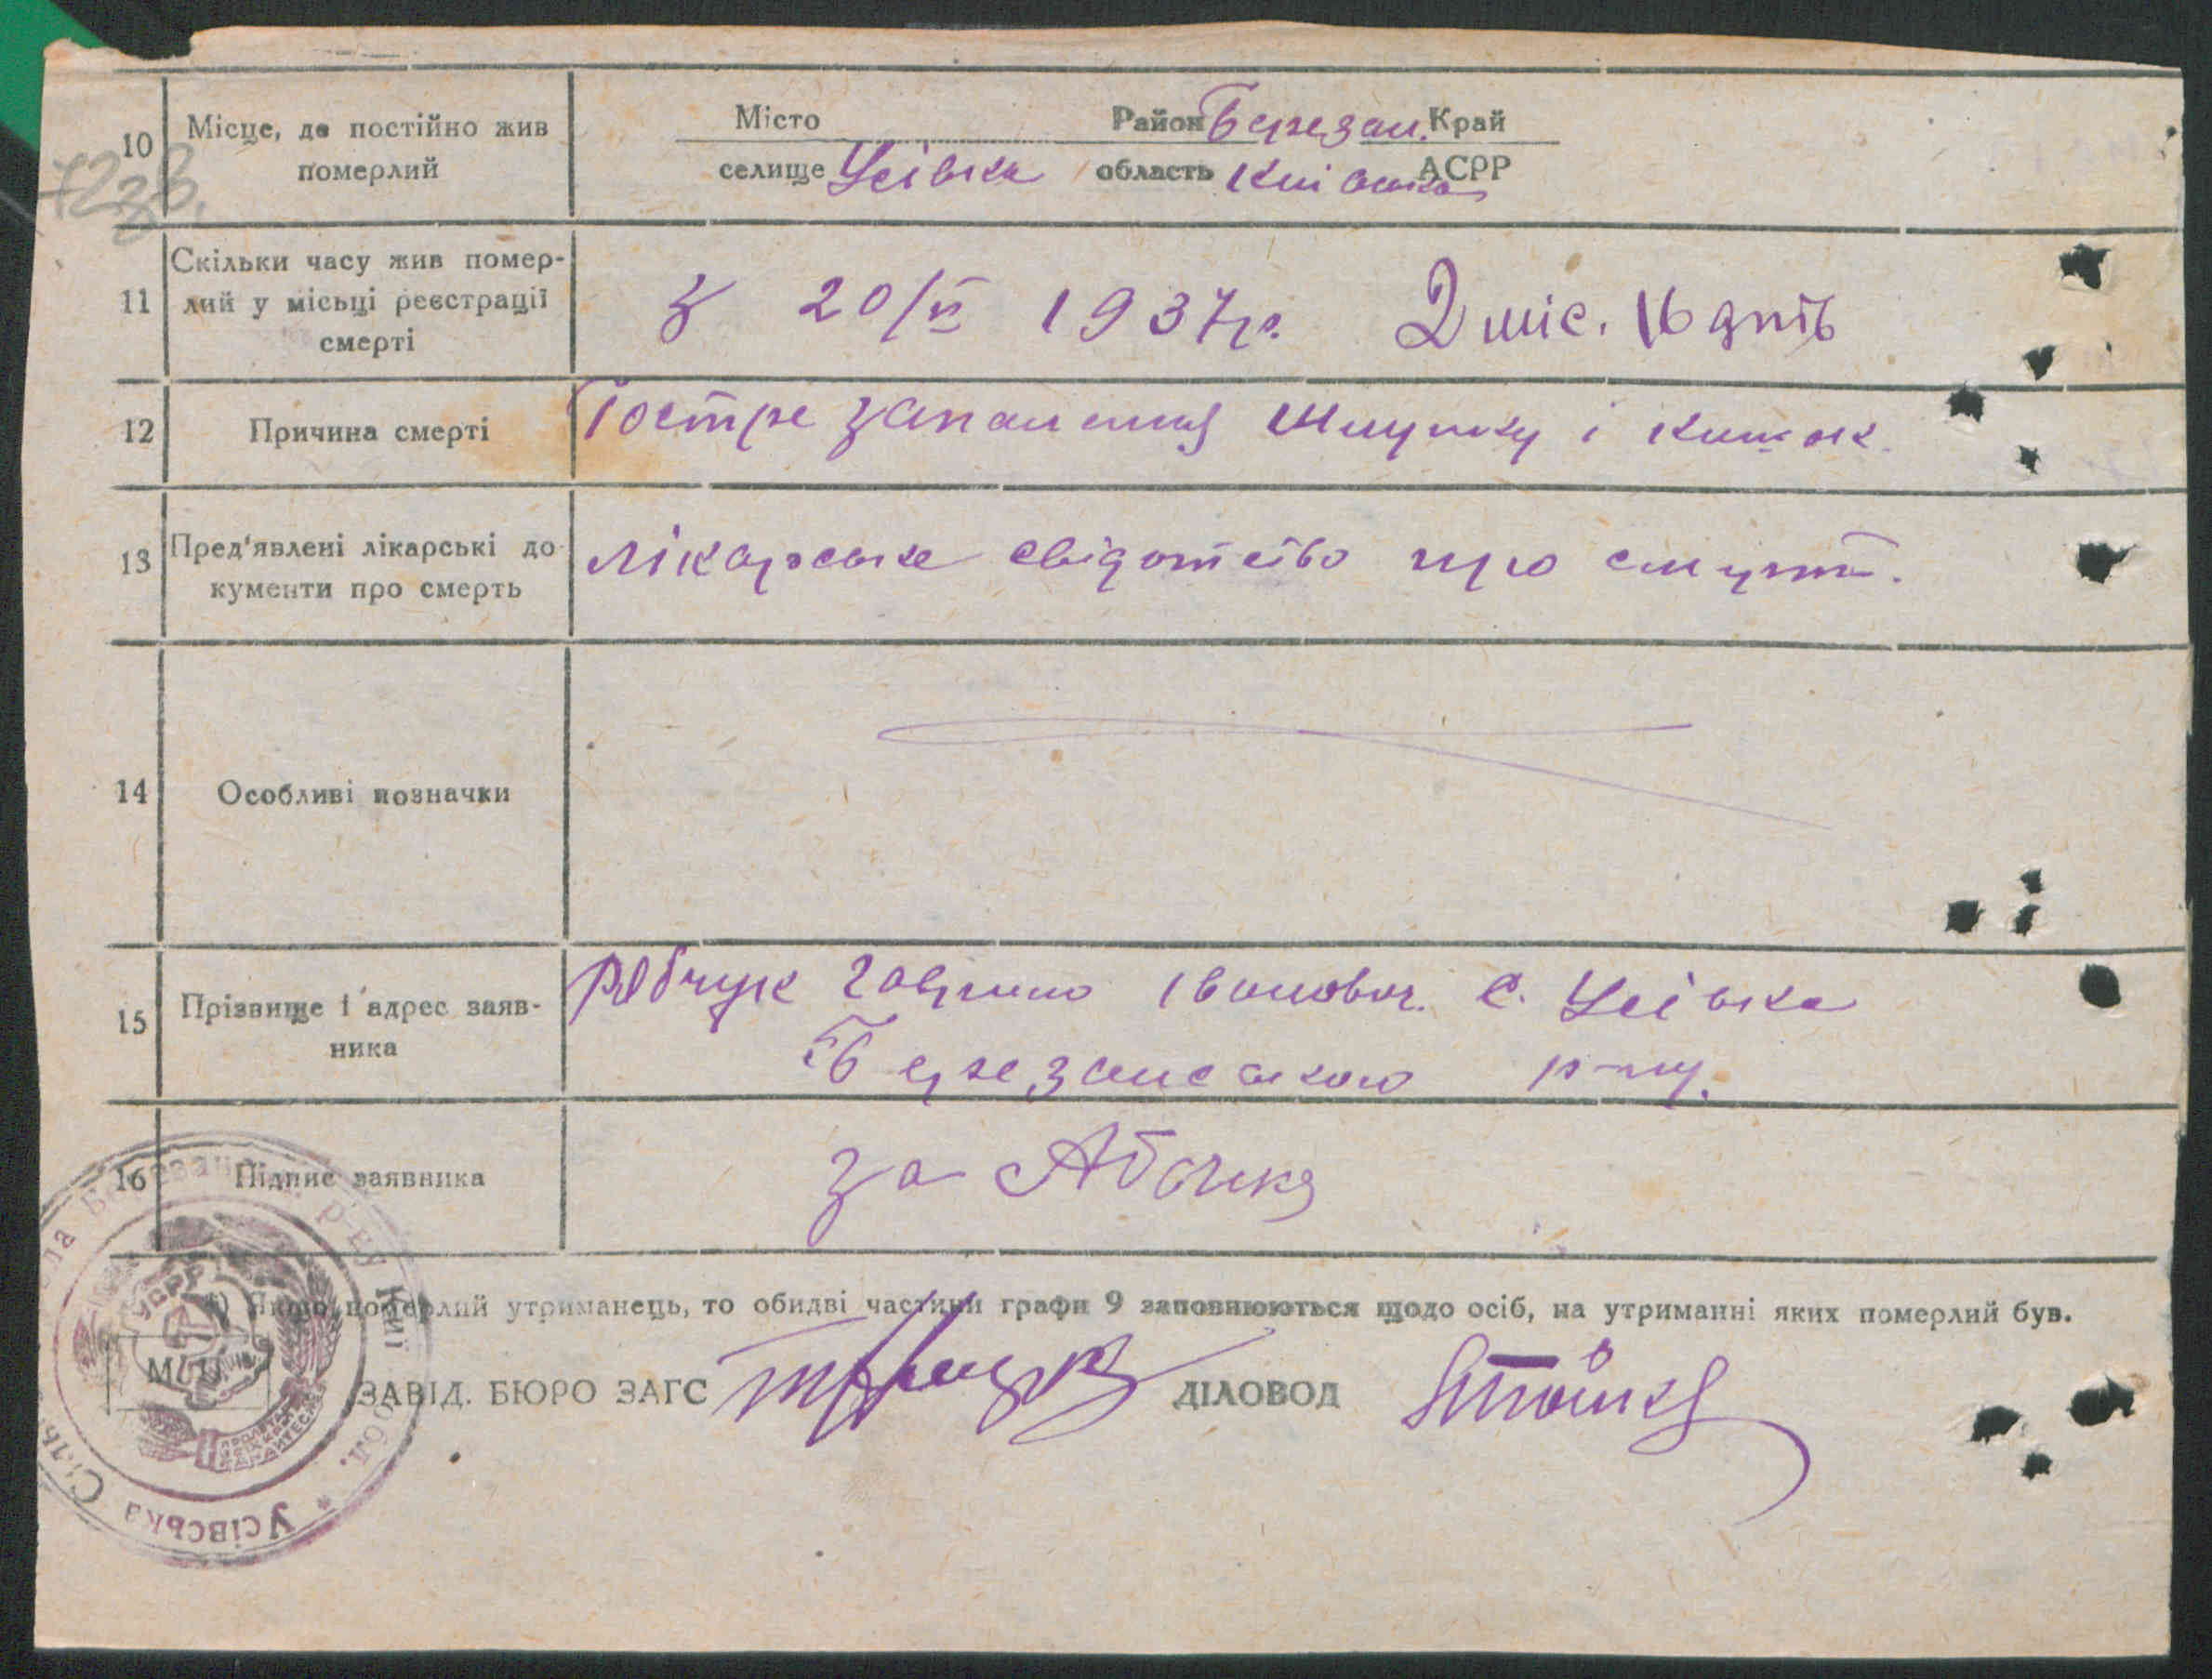 10 Місце, де постійно жив померлий
Місто Район Березан. Край
селище Усівка область Київська АСРР
11 Скільки часу жив помер-
лий у місьці реєстрації
смерті
з 20/VI 1937 р. 2 міс. 16 днів
12 Причина смерті
Гостре запалення Шлунку і кишок.
13 Пред'явлені лікарські до-
кументи про смерть
Лікарське свідотство про смерть.
14 Особливі позначки
15 Прізвище і адрес заяв-
ника
Рябчук Гаврило Іванович. с. Усівка
Березанського р-ну.
16 Підпис заявника
за
1) Якщо померлий утриманець, то обидві частини графи 9 заповнюються щодо осіб, на утриманні яких померлий був.
ЗАВІД. БЮРО ЗАГС ДІЛОВОД
УСРР
Усівська Сіль р-ну Київ обл.